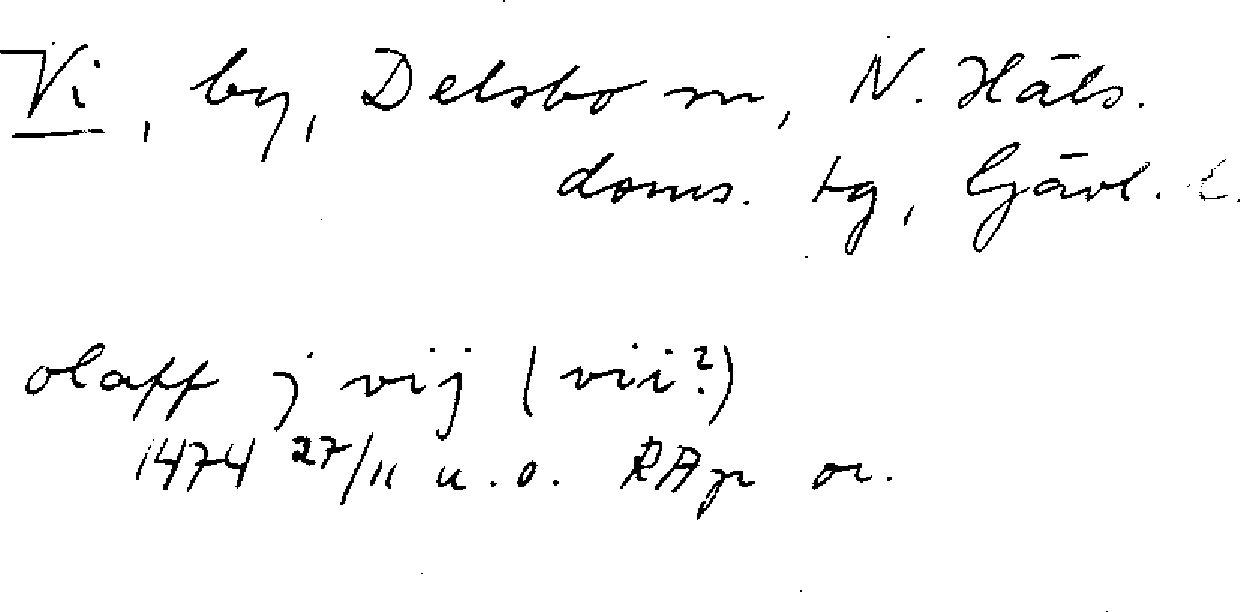 Vi, by, Delsbo sn, N. Häls.
doms. tg, Gävl. l.
olaff j vij (vii?)
1474 27/11 u.o. RAp or.